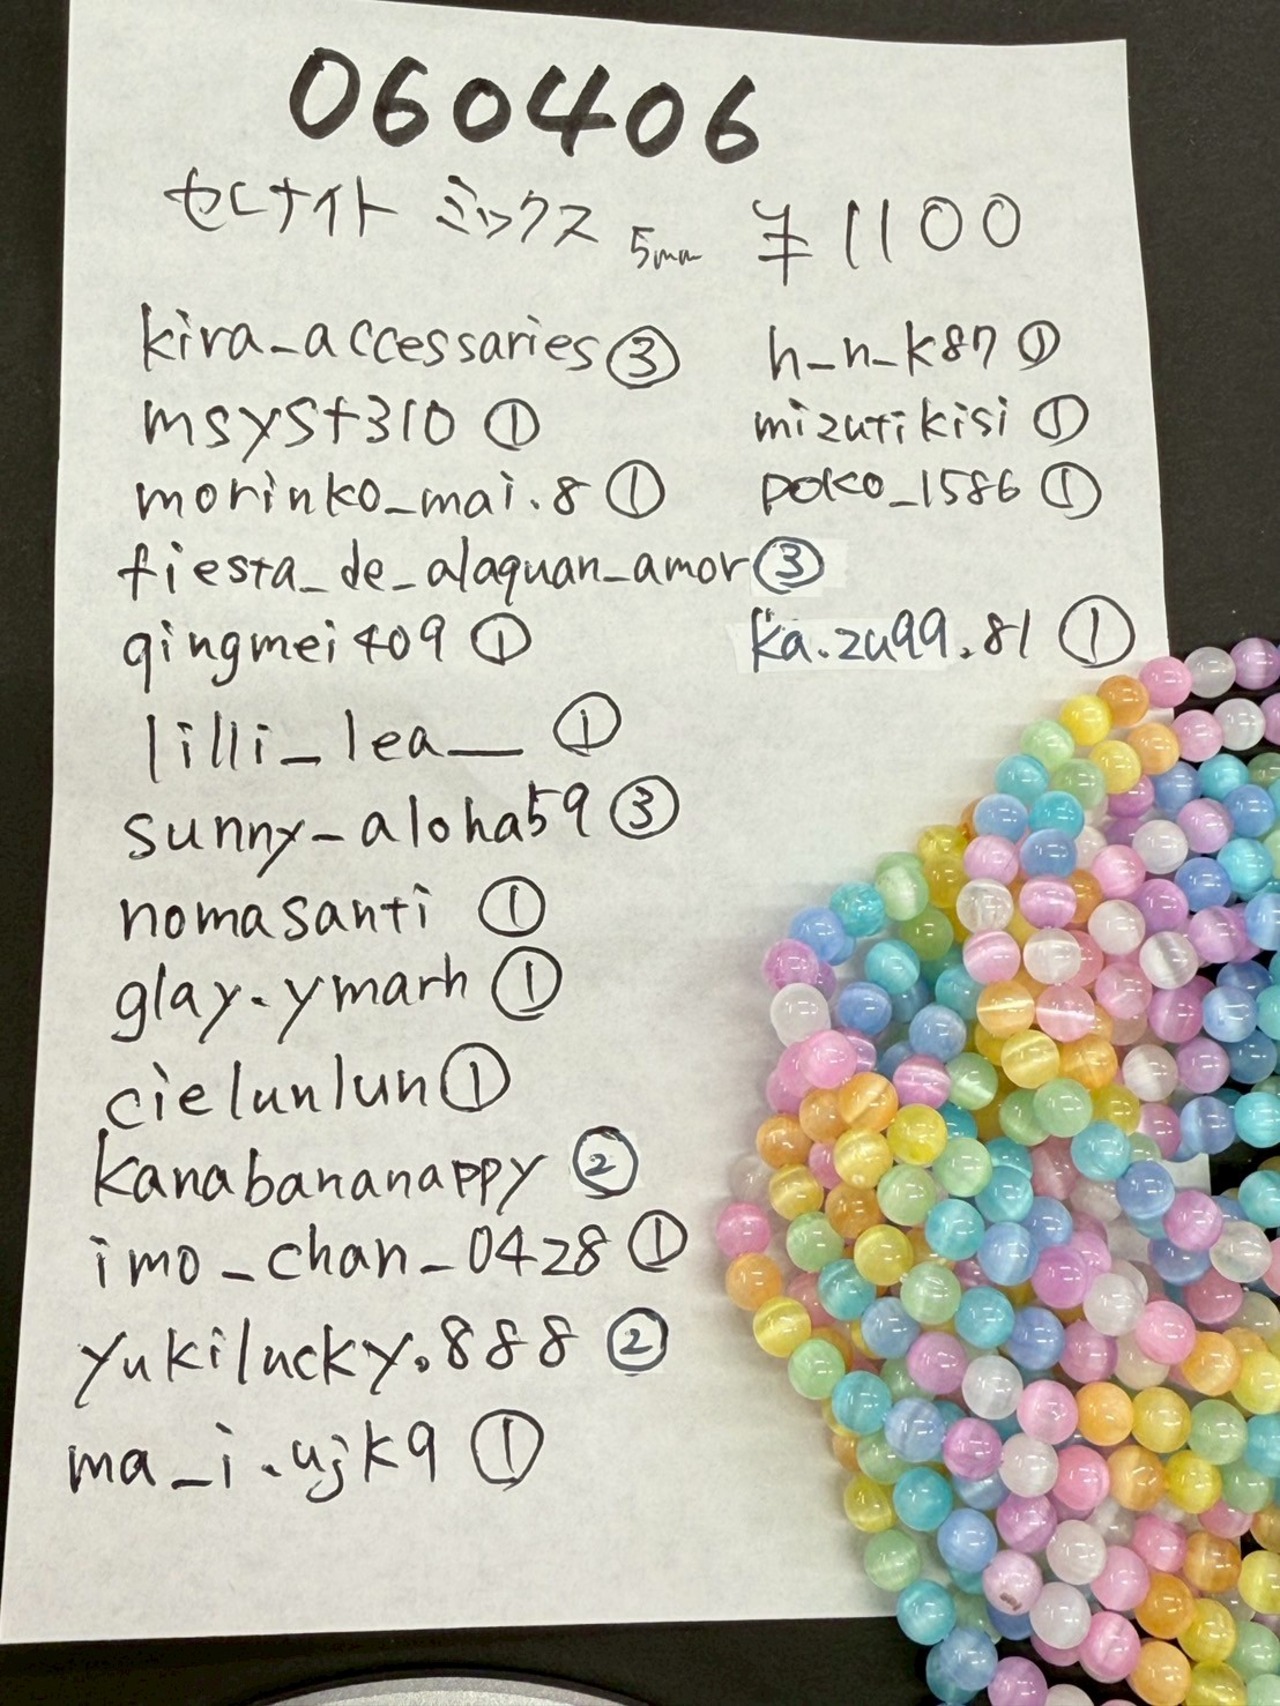 060406
セレナイト ミックス 5mm ¥1100
kira_accessaries ③
msyst310 ①
morinko_mai.8 ①
fiesta_de_alaquan_amor ③
qingmei409 ①
lilli_lea__ ①
sunny_aloha59 ③
nomasanti ①
glay.ymarh ①
cielunlun ①
kanabananappy ②
imo_chan_0428 ①
yukilucky.888 ②
ma_i.ujk9 ①
h_n_k87 ①
mizutikisi ①
poko_1586 ①
ka.zu99.81 ①